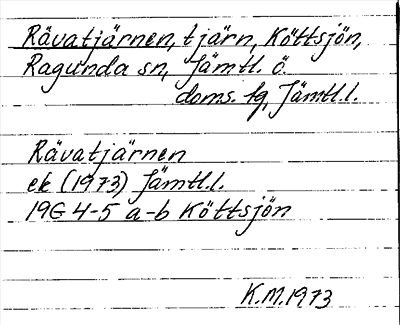 Rävatjärnen, tjärn, Köttsjön,
Ragunda sn, Jämtl. ö.
doms. tg, Jämtl.l.
Rävatjärnen
ek (1973) Jämtl.l.
19G 4-5 a-b Köttsjön
K.M.1973